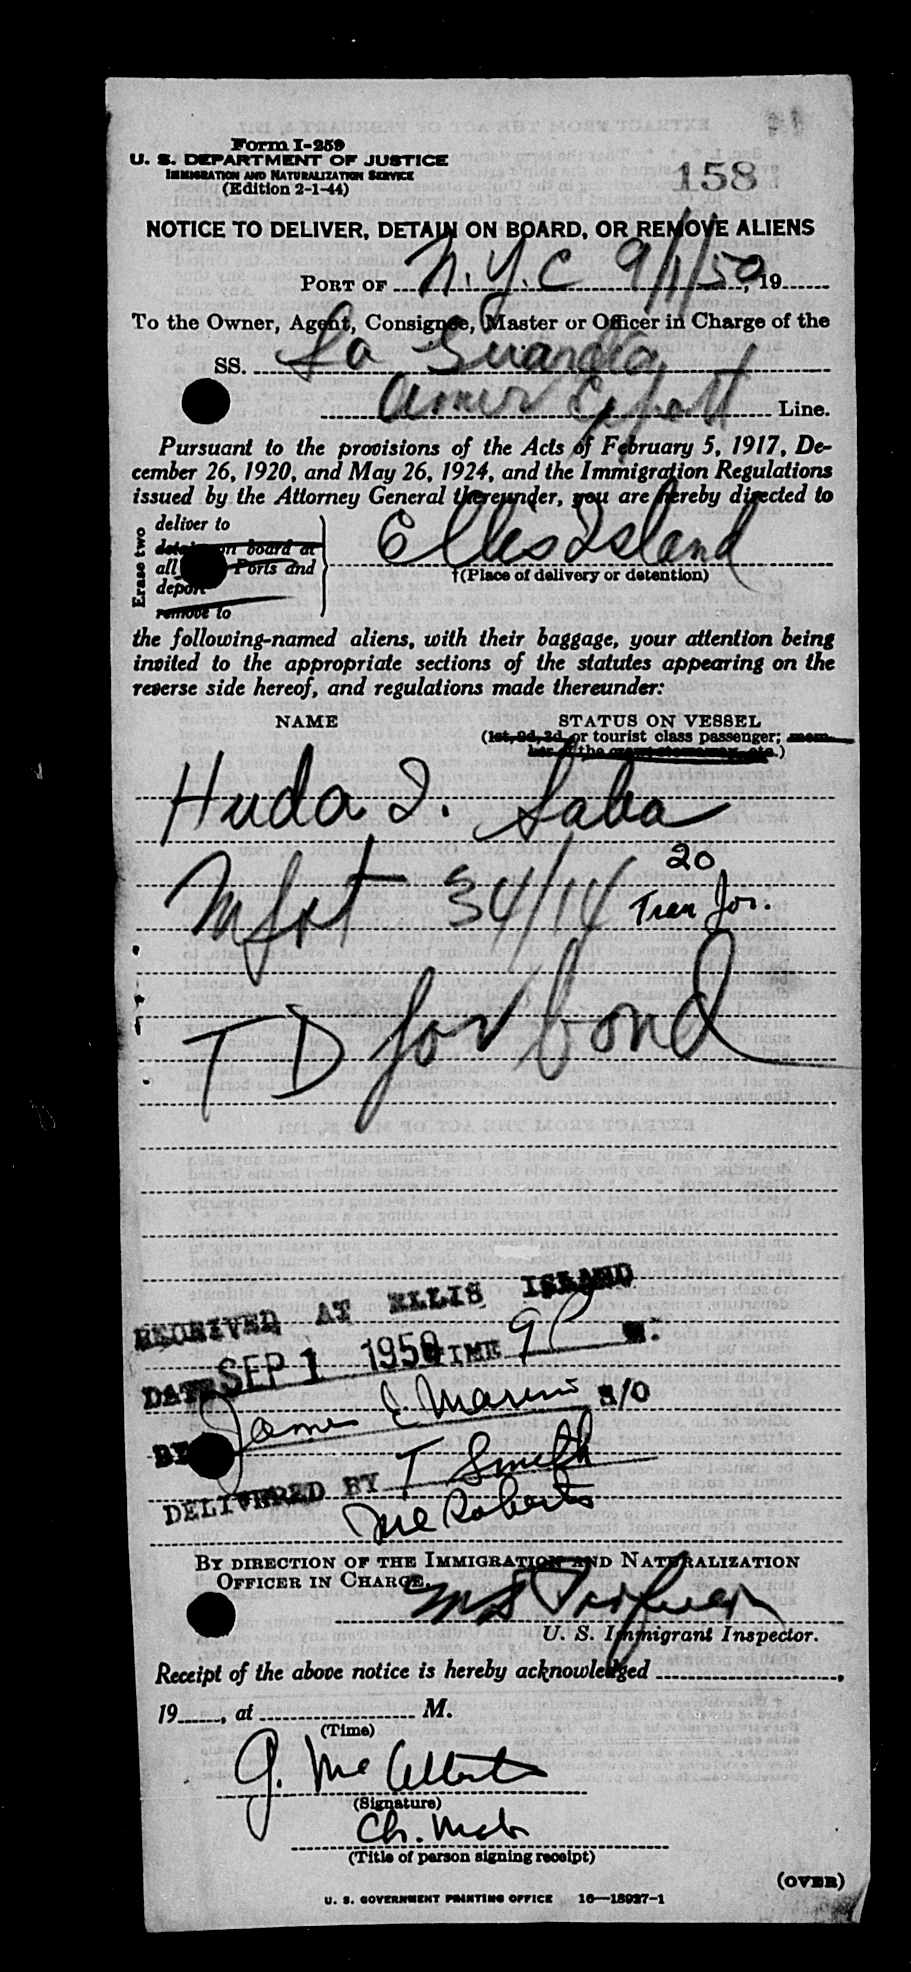 Form I-259
U. S. DEPARTMENT OF JUSTICE
IMMIGRATION AND NATURALIZATION SERVICE
(Edition 2-1-44)
158
NOTICE TO DELIVER, DETAIN ON BOARD, OR REMOVE ALIENS
PORT OF N.Y.C 9/1/50, 19
To the Owner, Agent, Consignee, Master or Officer in Charge of the
SS. La Guardia
Amer Export Line.
Pursuant to the provisions of the Acts of February 5, 1917, De-
cember 26, 1920, and May 26, 1924, and the Immigration Regulations
issued by the Attorney General thereunder, you are hereby directed to
Erase two
deliver to
detain on board at
all Ports and
deport
remove to
Ellis Island
†(Place of delivery or detention)
the following-named aliens, with their baggage, your attention being
invited to the appropriate sections of the statutes appearing on the
reverse side hereof, and regulations made thereunder:
NAME STATUS ON VESSEL
(1st, 2d, 3d, or tourist class passenger; mem-
ber of the crew, stowaway, etc.)
Huda I. Saba
20
Mfst 34/14 Tran Jor.
T D for bond
RECEIVED AT ELLIS ISLAND
DATE SEP 1 1950 TIME 9 P M.
BY James E. Marino S/O
DELIVERED BY T Smith
McRoberts
BY DIRECTION OF THE IMMIGRATION AND NATURALIZATION
OFFICER IN CHARGE.
U. S. Immigrant Inspector.
Receipt of the above notice is hereby acknowledged ,
19 , at M.
(Time)
G. Mc
(Signature)
Ch.
(Title of person signing receipt)
(OVER)
U. S. GOVERNMENT PRINTING OFFICE 16—18927-1